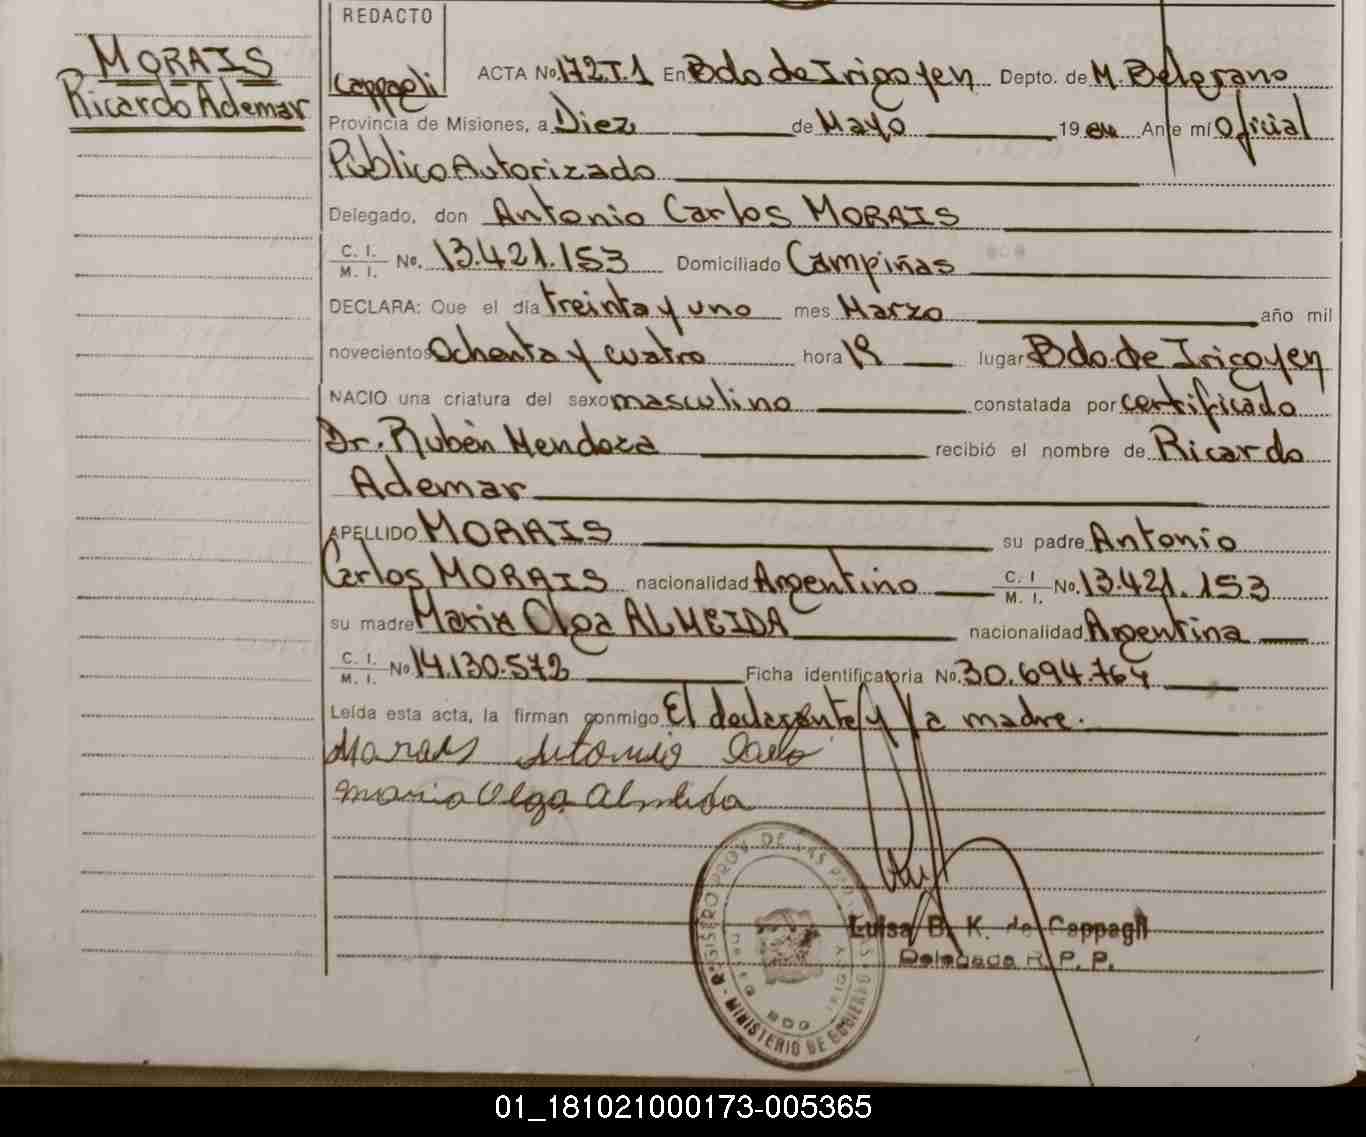 MORAIS
Ricardo Ademar
REDACTO
Cappagli
ACTA No. 172T.1 En Bdo de Irigoyen Depto. de M. Belgrano
Provincia de Misiones, a Diez de Mayo 19 84 Ante mí Oficial
Público Autorizado
Delegado, don Antonio Carlos MORAIS
C. I.
M. I. No. 13.421.153 Domiciliado Campiñas
DECLARA: Que el día treinta y uno mes Marzo año mil
novecientos Ochenta y cuatro hora 19 lugar Bdo.de Irigoyen
NACIO una criatura del sexo masculino constatada por certificado
Dr. Rubén Mendoza recibió el nombre de Ricardo
Ademar
APELLIDO MORAIS su padre Antonio
Carlos MORAIS nacionalidad Argentino C. I M. I. No. 13.421.153
su madre Maria Olga ALMEIDA nacionalidad Argentina
C. I. M. I. No 14.130.572 Ficha identificatoria No. 30.694.764
Leída esta acta, la firman conmigo El declarante y la madre.
Morais Antonio Carlo
Maria Olga Almeida
Luisa B. K. de Cappagli
Delegada R. P. P.
REGISTRO PROV. DE LAS
MINISTERIO DE GOBIERNO
BDO
01_181021000173-005365